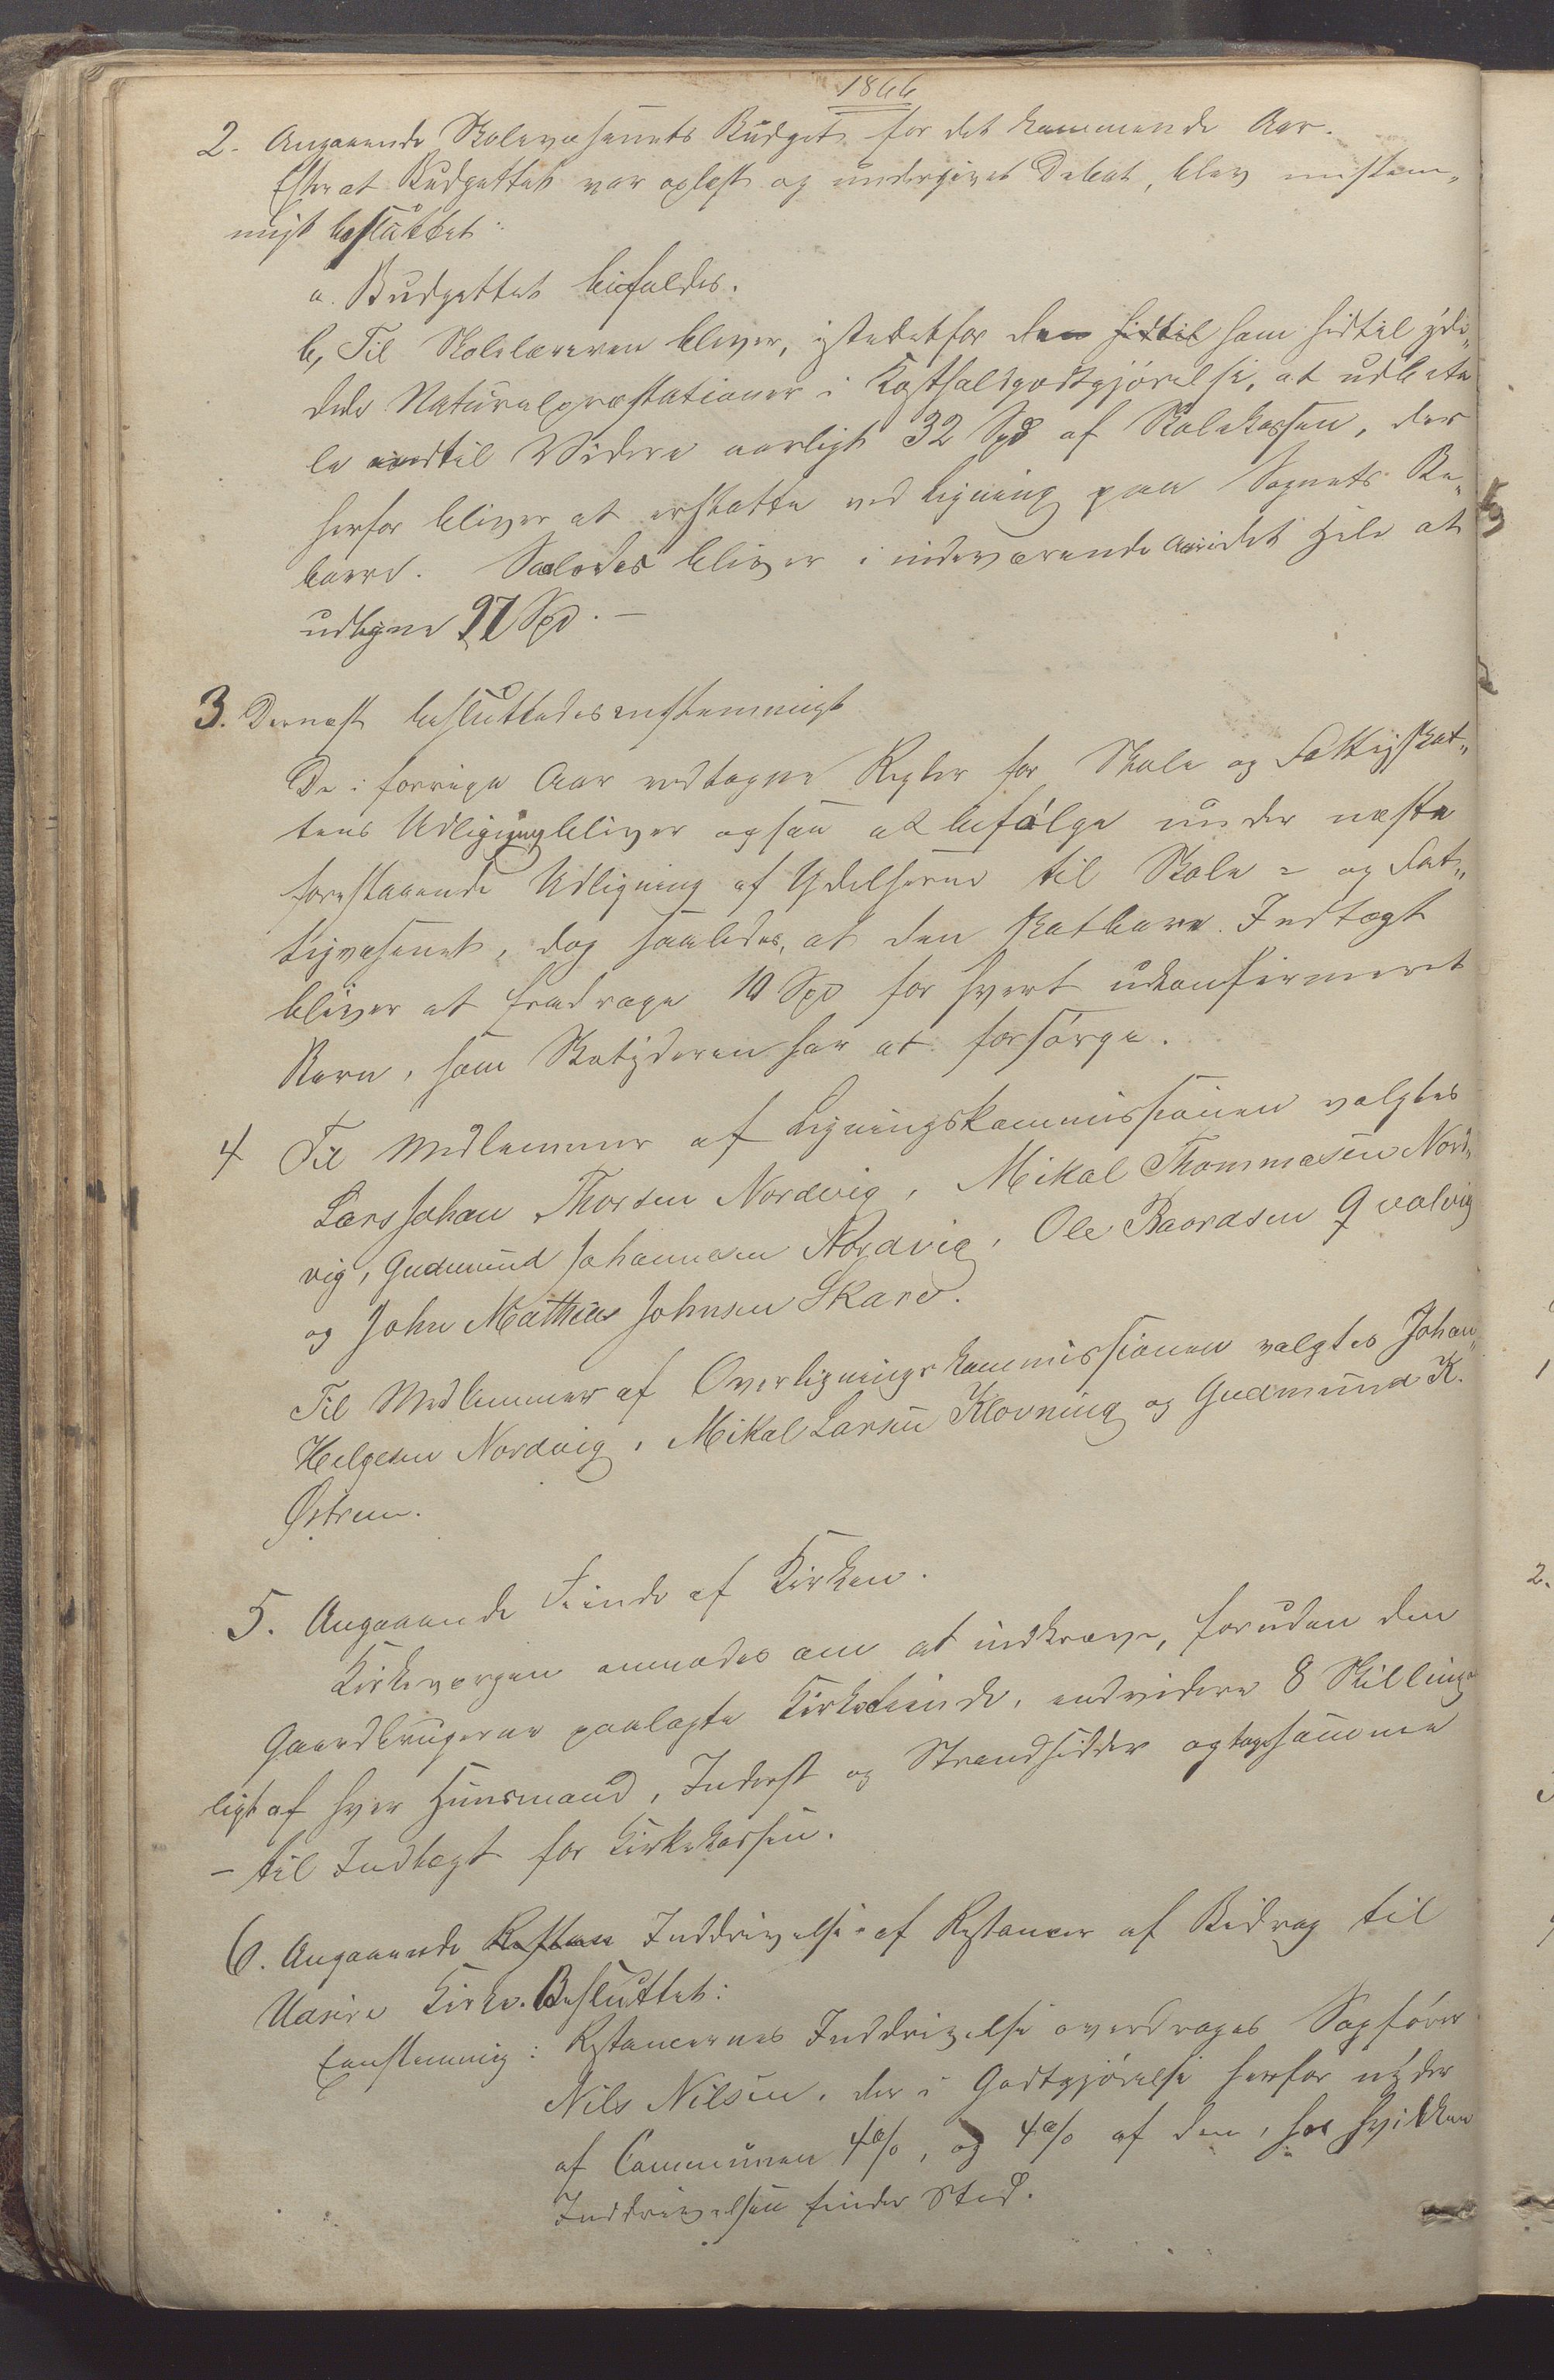 1866
2. Angaaende Skolevæsenets Budget for det kommende Aar.
Efterat Budgettet var oplæst og undergivet Debat, blev enstem„
migt besluttet:
a. Budgettet bifaldes.
b, Til Skolelæreren bliver, istedetfor den hidtil som hidtil ydi„
dede Naturalpræstationer i Kostholdgodtgjørelse, at udbeta
le indtil Videre aarligt 32 Spd af Skolekassen, der
herfor bliver at erstatte ved Ligning paa Sognets Be„
boere. Saaledes bliver i indeværende Aar i det Hele at
udligne 97 Spd. —
3. Dernæst besluttedes enstemmigt
De i forrige Aar vedtagne Regler for Skole og Fattigskat„
tens Udligning bliver ogsaa at befølge under næste
forestaaende Udligning af Ydelserne til Skole- og Fat„
tigvæsenet, dog saaledes, at den skatbare Indtægt
bliver at fradrage 10 Spd for hvert ukonfirmeret
Barn, som Skatyderen har at forsørge.
4 Til Medlemmer af Ligningskommissionen valgtes
Lars Johan Thorsen Nordvig, Mikal Thommasen Nord„
vig, Gudmund Johannesen Nordvig, Ole Baardsen Qvalvig
og John Mathias Johnsen Skare.
Til Medlemmer af Overligningskommissionen valgtes Johan„
Helgesen Nordvig, Mikal Larsen Klovning og Gudmund K.
Østrem.
5. Angaaende Tiende af Kirken.
Kirkevergen anmodes om at indkræve, foruden den
Gaardbrugerne paalagte Kirketiende, endvidere 8 Skilling
ligt af hver Huusmand, Inderst og Strandsidder og tages samme
– til Indtægt for Kirkekassen.
6. Angaaende Restan Inddrivelse af Restancer af Bidrag til
Udsire Kirke. Besluttet:
Eenstemmig: Restancernes Inddrivelse overdrages Sagfører
Nils Nilsen, der i Godtgjørelse herfor nyder
af Communen 4%, og 4% af den, hos hvilken
Inddrivelsen finder Sted.